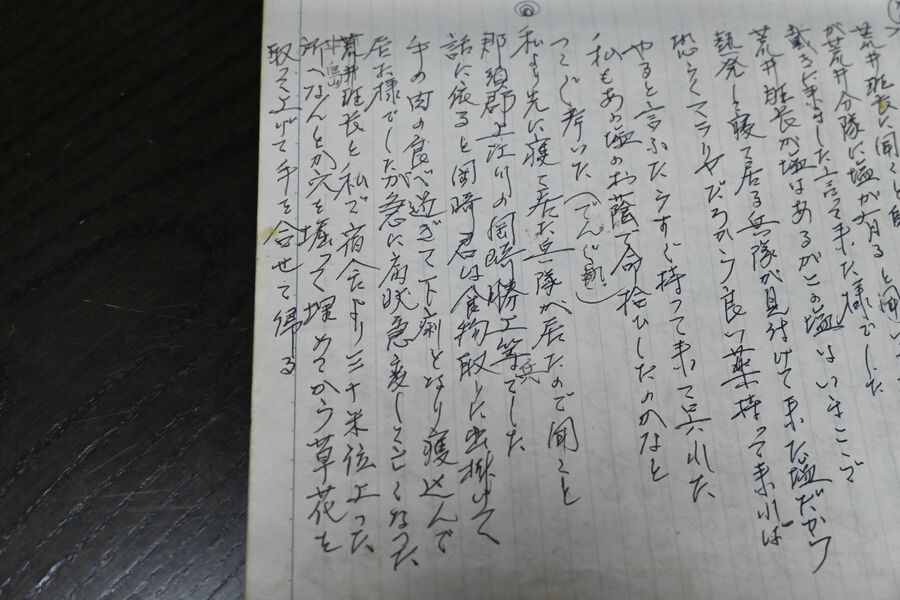 荒井班長に聞くと自
が荒井分隊に塩が有ると聞い
戴きに来ました言って来た様でした
荒井班長が塩はあるがこの塩はいまこゝで
熱発して寝て居る兵隊が見付けて来た塩だから
恐らくマラリヤだろから良い薬持って来れば
やると言ふたらすぐ持って来て呉れた
私もあの塩のお蔭で命拾ひしたのかなと
つくしく考いた(でんぐ熱)
私より先に寝て居た兵隊が居たので聞くと
那須郡上江川の岡崎勝上等兵でした
話に依ると岡崎君は食物取した出掛けて
手の肉の食べ過ぎて下痢となり寝込んで
居た様でしたが急に病状急変して亡くなった
荒井班長と私で宿舎より三十米位上った
半島
所へなんとか穴を堀って埋めてから草花を
取って上げて手を合せて帰る